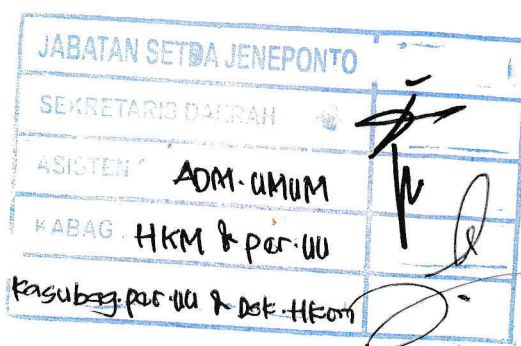 JABATAN SETDA JENEPONTO
SEKRETARIS DAERAH
ASISTEN ADM. UMUM
KABAG. HKM & par. UU
Kasubag. par. UU & Dok. HKom